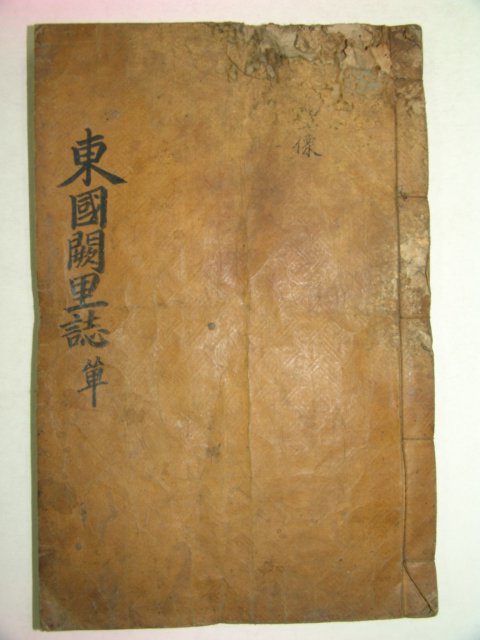 東國闕里誌 單